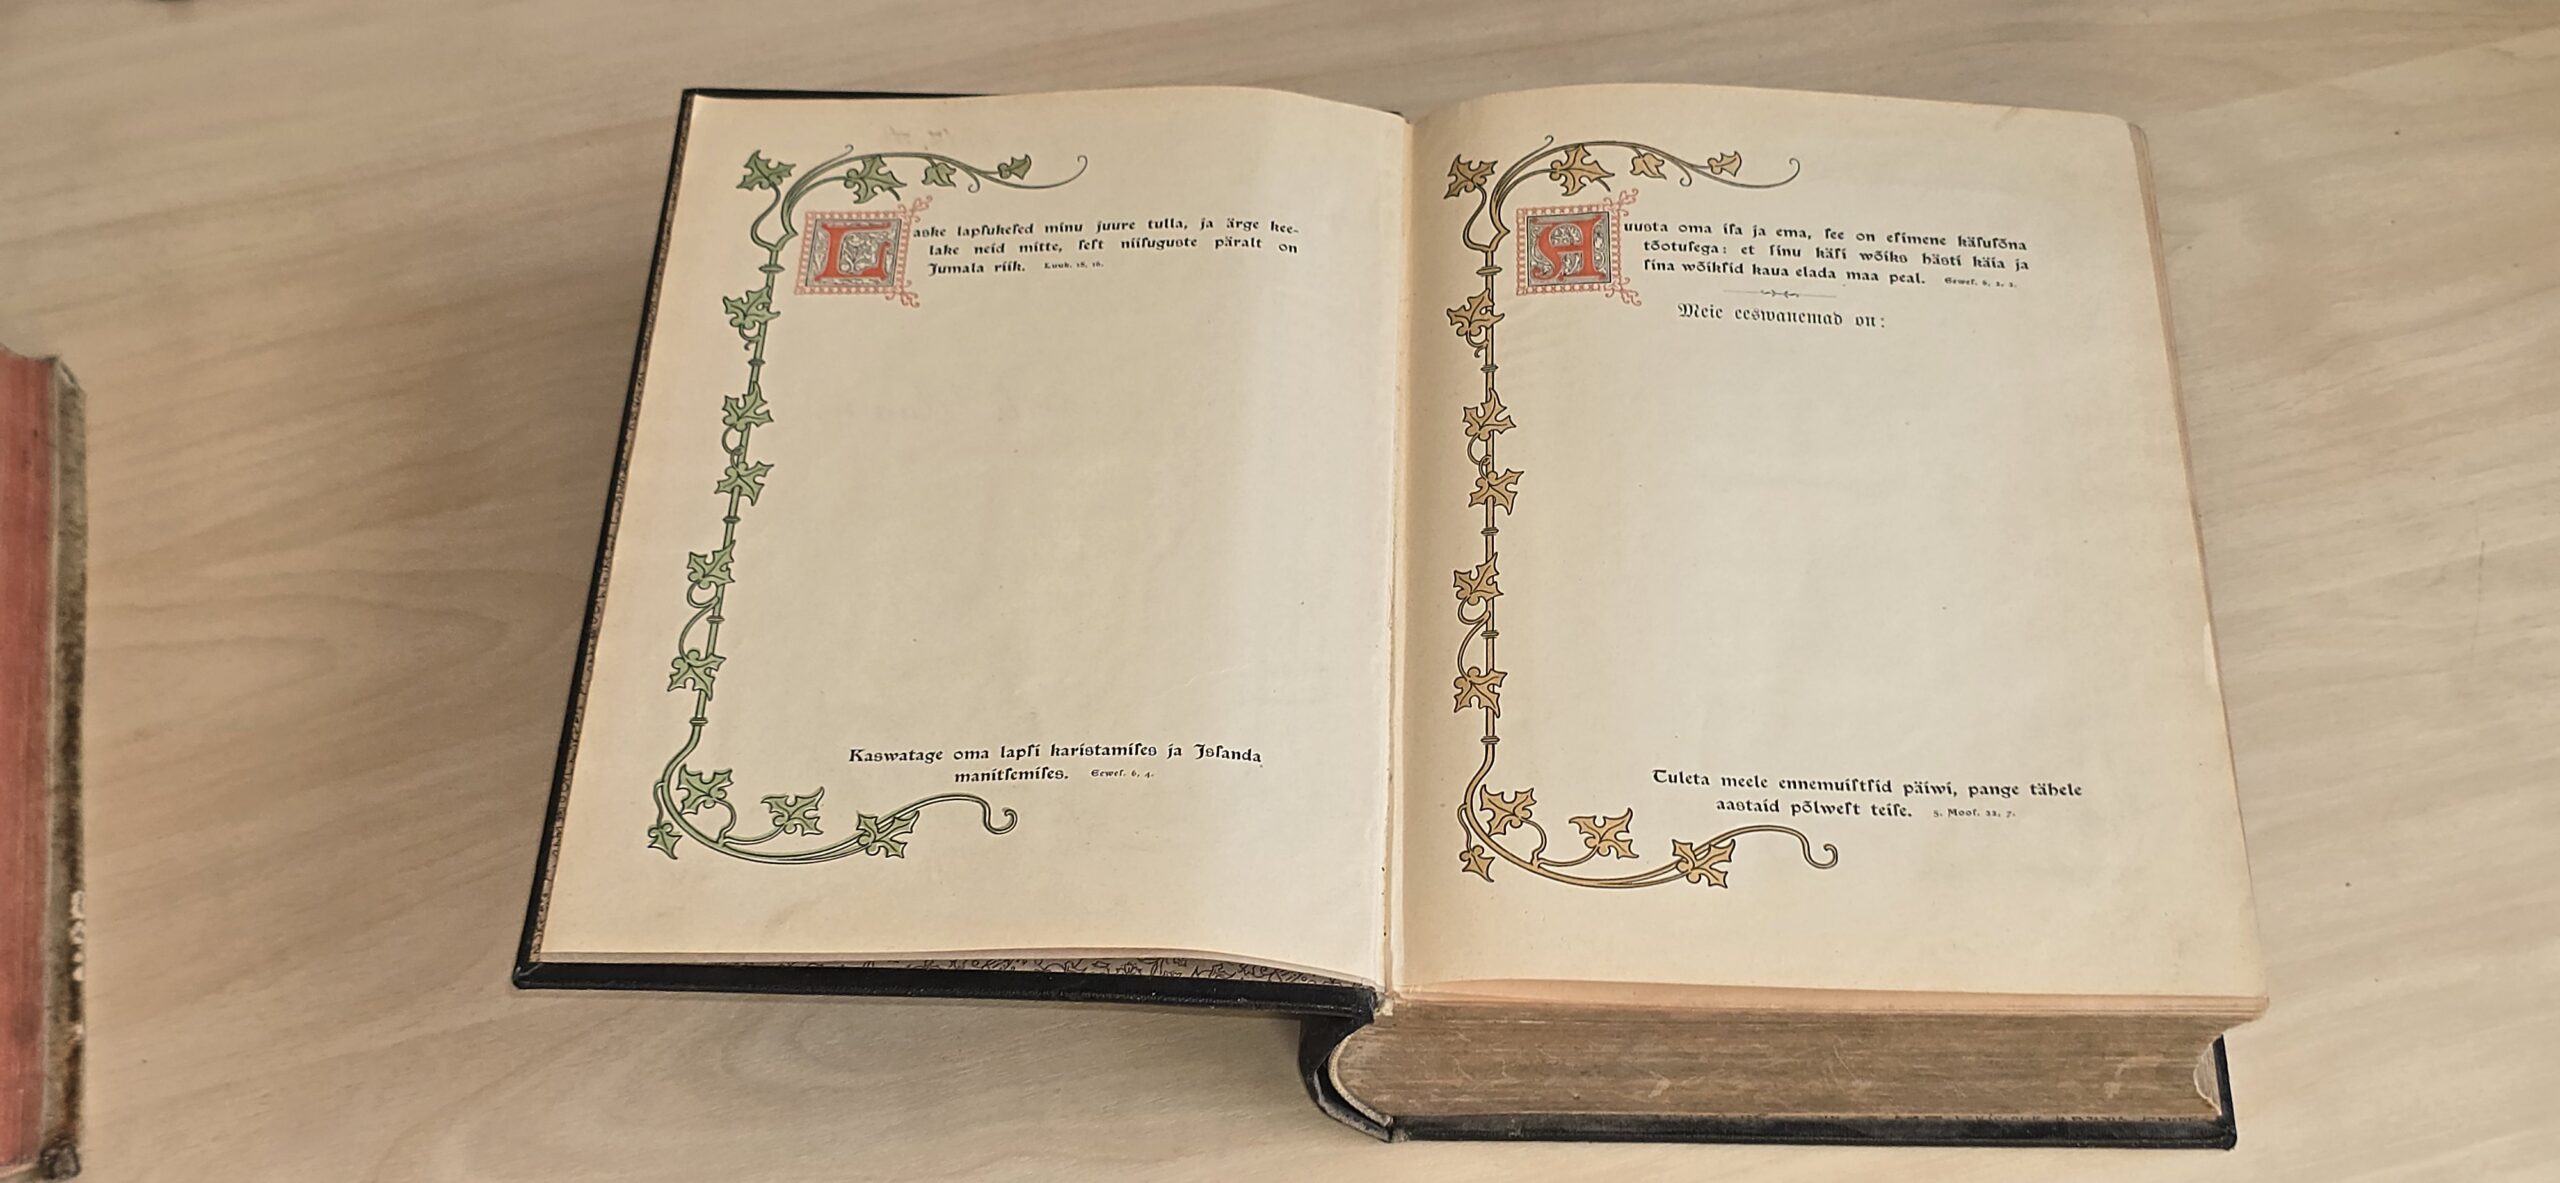 Laske lapſukeſed minu juure tulla, ja ärge kee-
lake neid mitte, ſeſt niiſuguste päralt on
Jumala riik. Luuk. 18, 16.
Kaswatage oma lapſi karistamiſes ja Isſanda
manitſemiſes. Eeweſ. 6, 4.
Auusta oma iſa ja ema, ſee on eſimene käſuſõna
tõotuſega: et ſinu käſi wõiks häſti käia ja
ſina wõikſid kaua elada maa peal. Eeweſ. 6, 2, 3.
Meie eeswanemad on:
Tuleta meele ennemuiſtſid päiwi, pange tähele
aastaid põlweſt teiſe. 5. Mooſ. 32, 7.